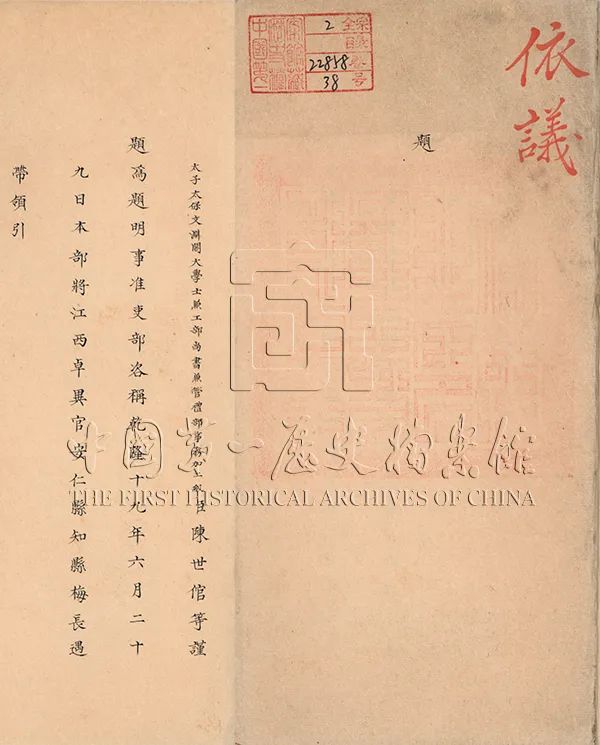 依議
題
2
22858
38
號
太子太保文淵閣大學士兼工部尚書兼管禮部事務加 臣陳世倌等謹
題爲題明事准吏部咨稱乾隆十九年六月二十
九日本部將江西卓異官安仁縣知縣梅長遇
帶領引
中國第一歷史檔案館
THE FIRST HISTORICAL ARCHIVES OF CHINA